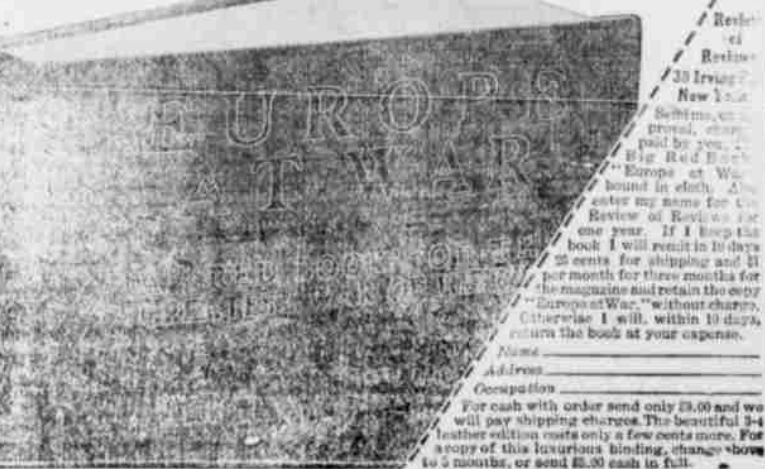 EUROPE
AT WAR
Review
of
Reviews
30 Irving
New
Send me, on
proval, charges
paid by you,
Big Red Book
"Europe at War"
bound in cloth. Also
enter my name for the
Review of Reviews for
one year. If I keep the
book I will remit in 10 days
25 cents for shipping and $1
per month for three months for
the magazine and retain the copy
"Europe at War," without charge.
Otherwise I will, within 10 days,
return the book at your expense.
Name
Address
Occupation
For cash with order send only $3.00 and we
will pay shipping charges. The beautiful 3-4
leather edition costs only a few cents more. For
a copy of this luxurious binding, change above
to 5 months, or send $5.00 cash in full.